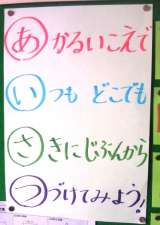 あかるいこえで
いつも どこでも
さきにじぶんから
つづけてみよう!